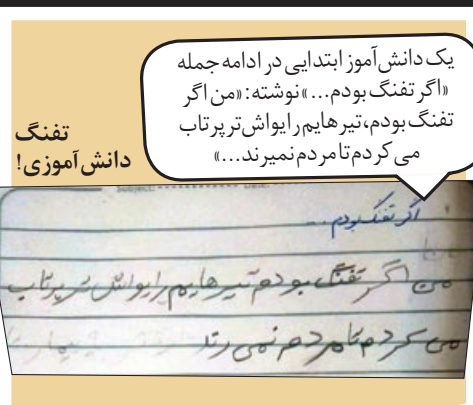 یک دانش‌آموز ابتدایی در ادامه جمله
«اگر تفنگ بودم...» نوشته: «من اگر
تفنگ بودم، تیرهایم را یواش‌تر پرتاب
می‌کردم تا مردم نمیرند...»
تفنگ
دانش‌آموزی!
اگر تفنگ بودم...
من اگر تفنگ بودم تیرهایم را یواش تر پرتاب
می کردم تا مردم نمی رند